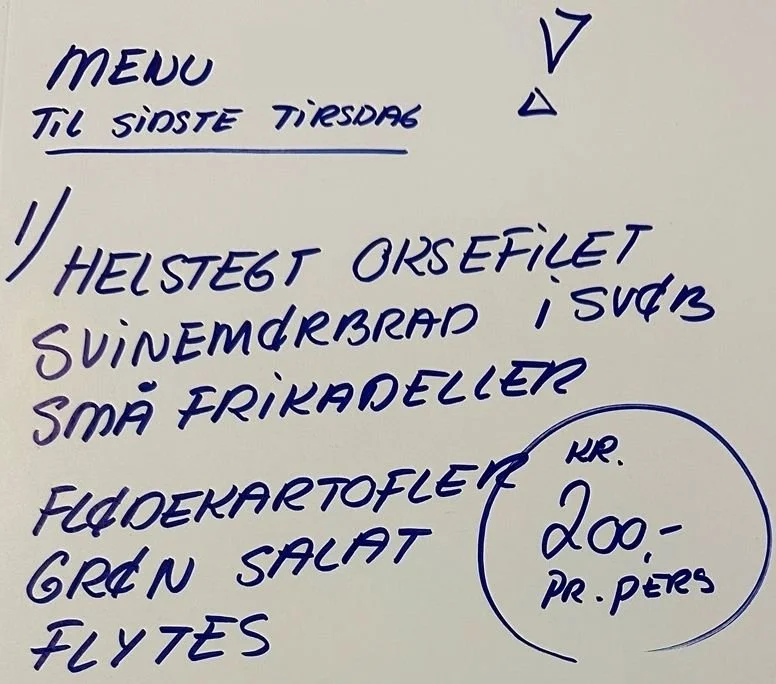 MENU
TIL SIDSTE TIRSDAG
1/
HELSTEGT OKSEFILET
SVINEMØRBRAD i SVØB
SMÅ FRIKADELLER
FLØDEKARTOFLER
GRØN SALAT
FLYTES
KR.
200,-
PR. PERS